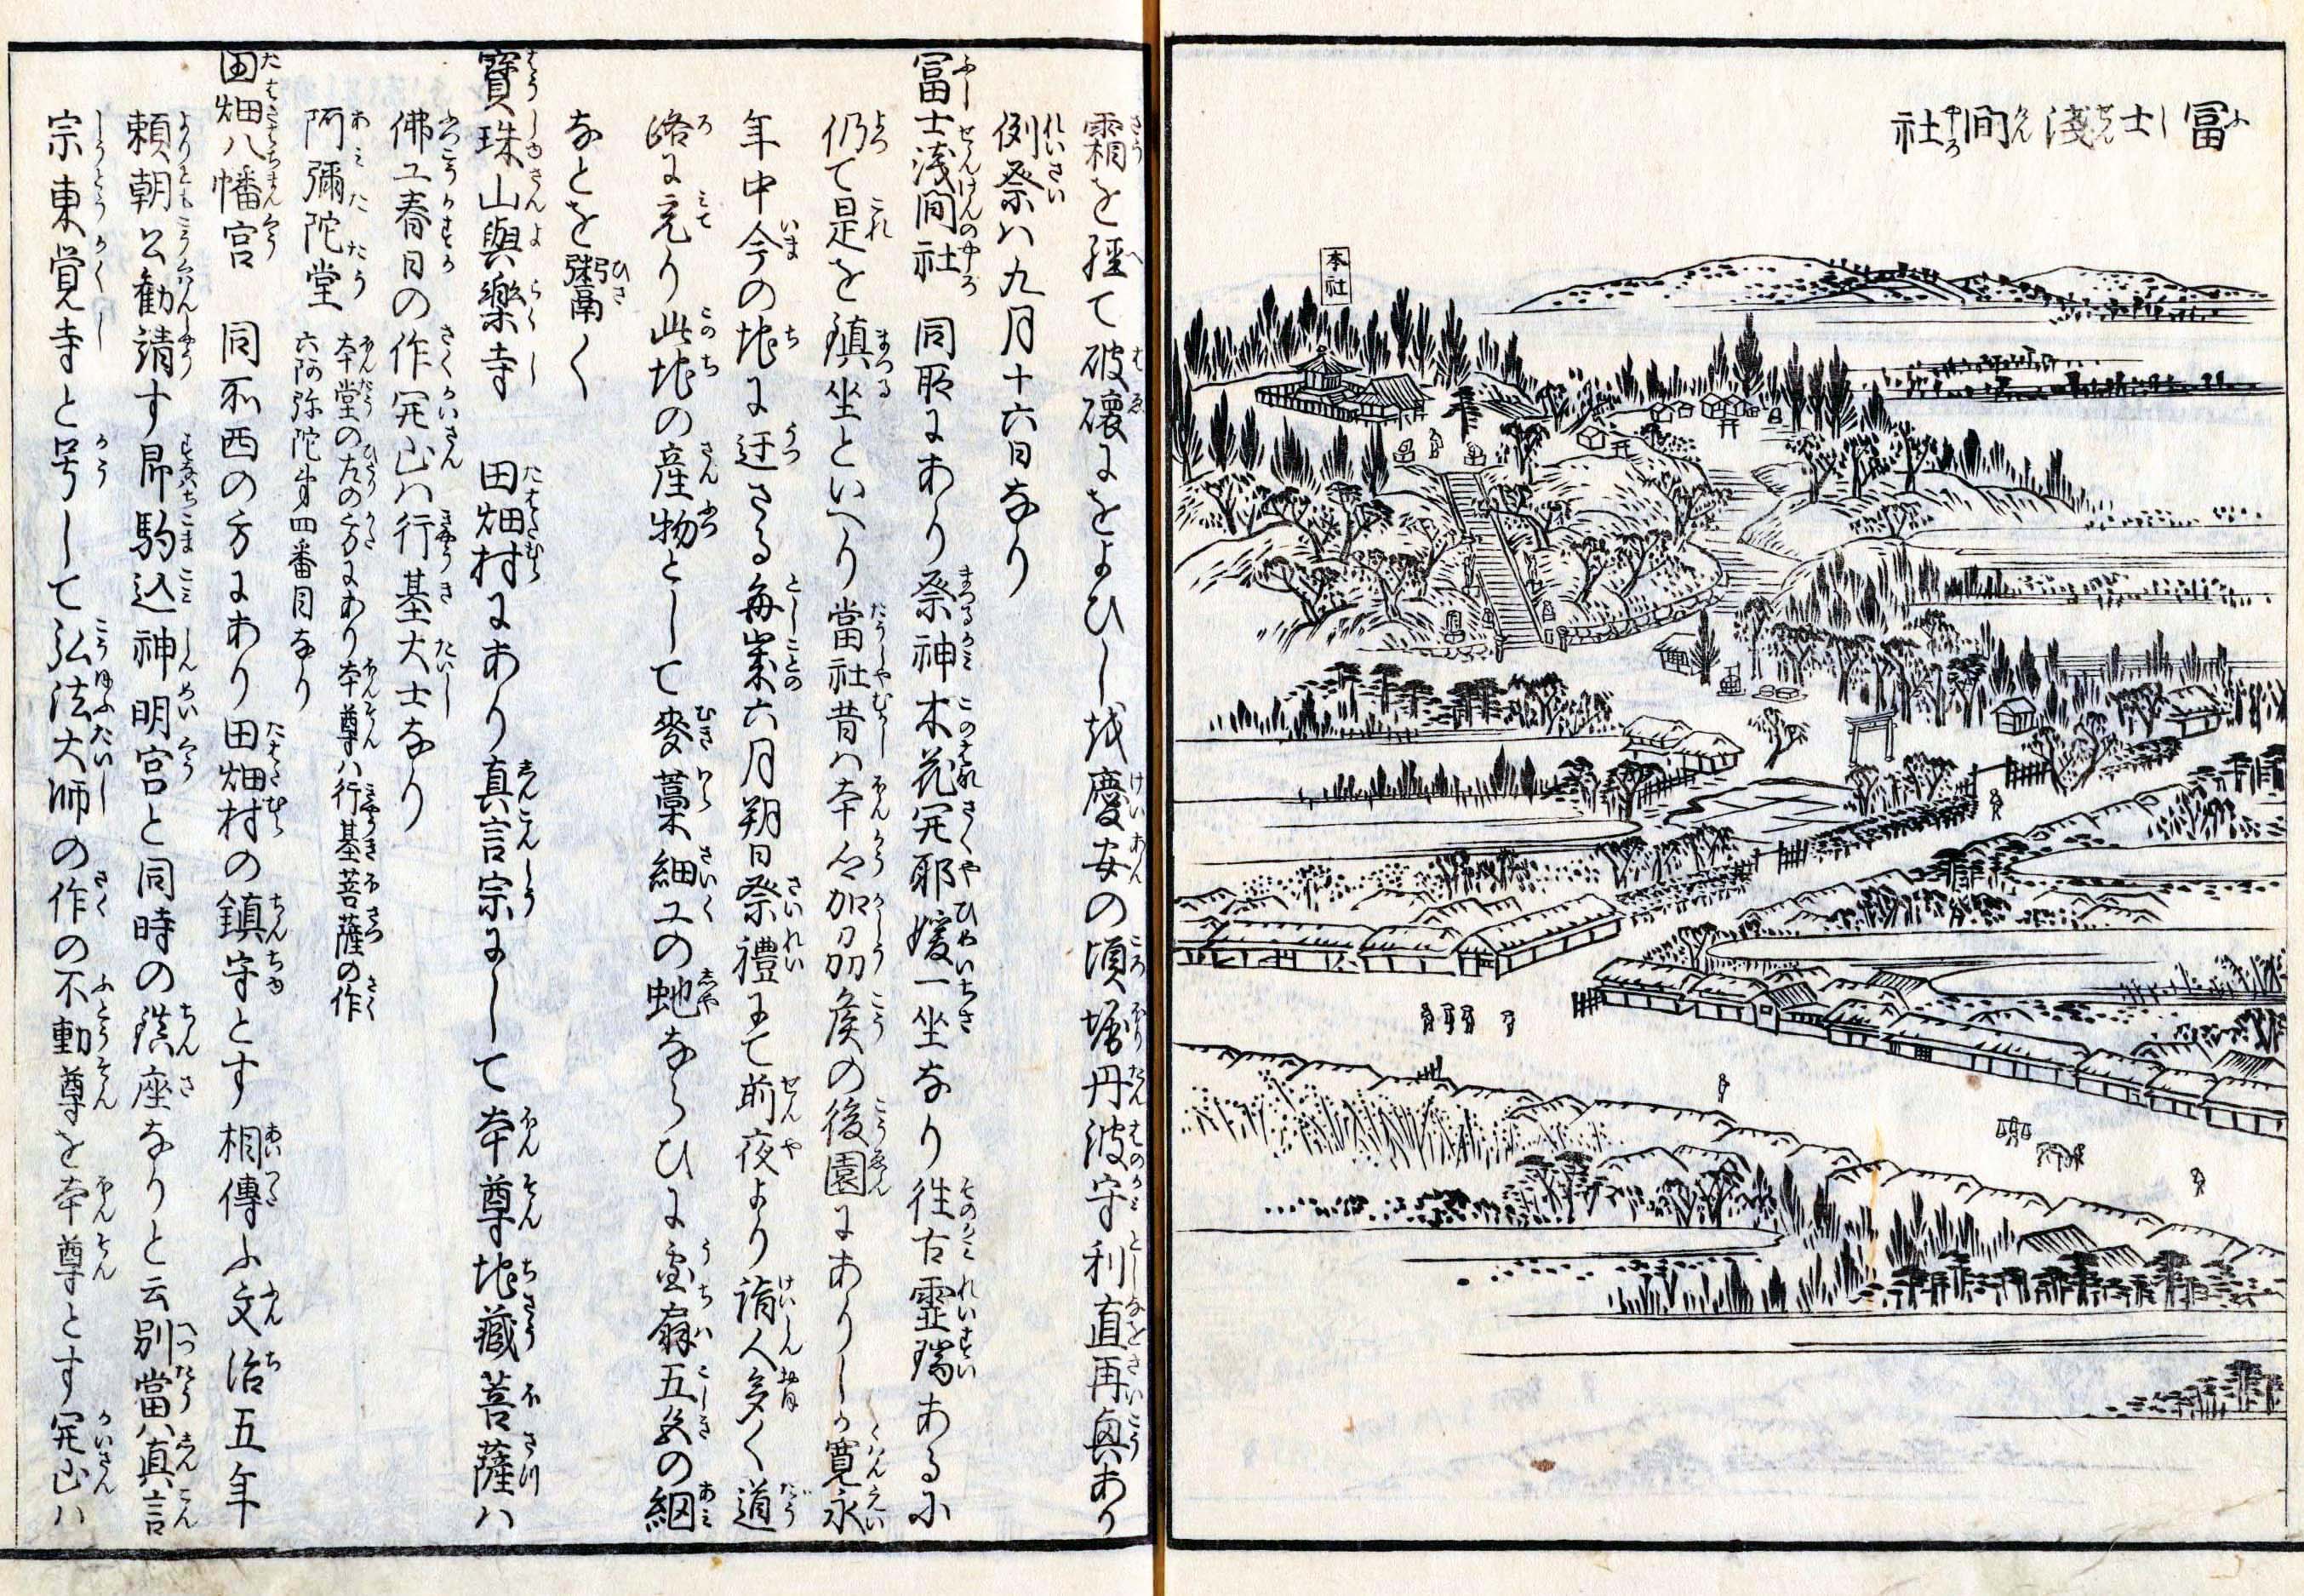 冨士淺間社
本社
霜を経て破壊におよひしを慶安の頃堀丹波守利直再興あり
例祭ハ九月十六日なり
冨士浅間社 同所にあり祭神木花開耶媛一坐なり往古霊瑞あるに
仍て是を鎮坐といへり當社昔ハ本郷加州侯の後園にありしか寛永
年中今の地に迁さる毎歳六月朔日祭禮にて前夜より詣人多く道
路に充り此地の産物として麥藁細工の虵ならひに團扇五色の網
なとを鬻く
寶珠山與樂寺 田畑村にあり真言宗にして本尊地蔵菩薩ハ
佛工春日の作開山ハ行基大士なり
阿彌陀堂 本堂の左の方にあり本尊ハ行基菩薩の作
六阿弥陀第四番目なり
田畑八幡宮 同所西の方にあり田畑村の鎮守とす相傳ふ文治五年
頼朝公勧請す即駒込神明宮と同時の鎮座なりと云別當ハ真言
宗東覚寺と号して弘法大師の作の不動尊を本尊とす開山ハ